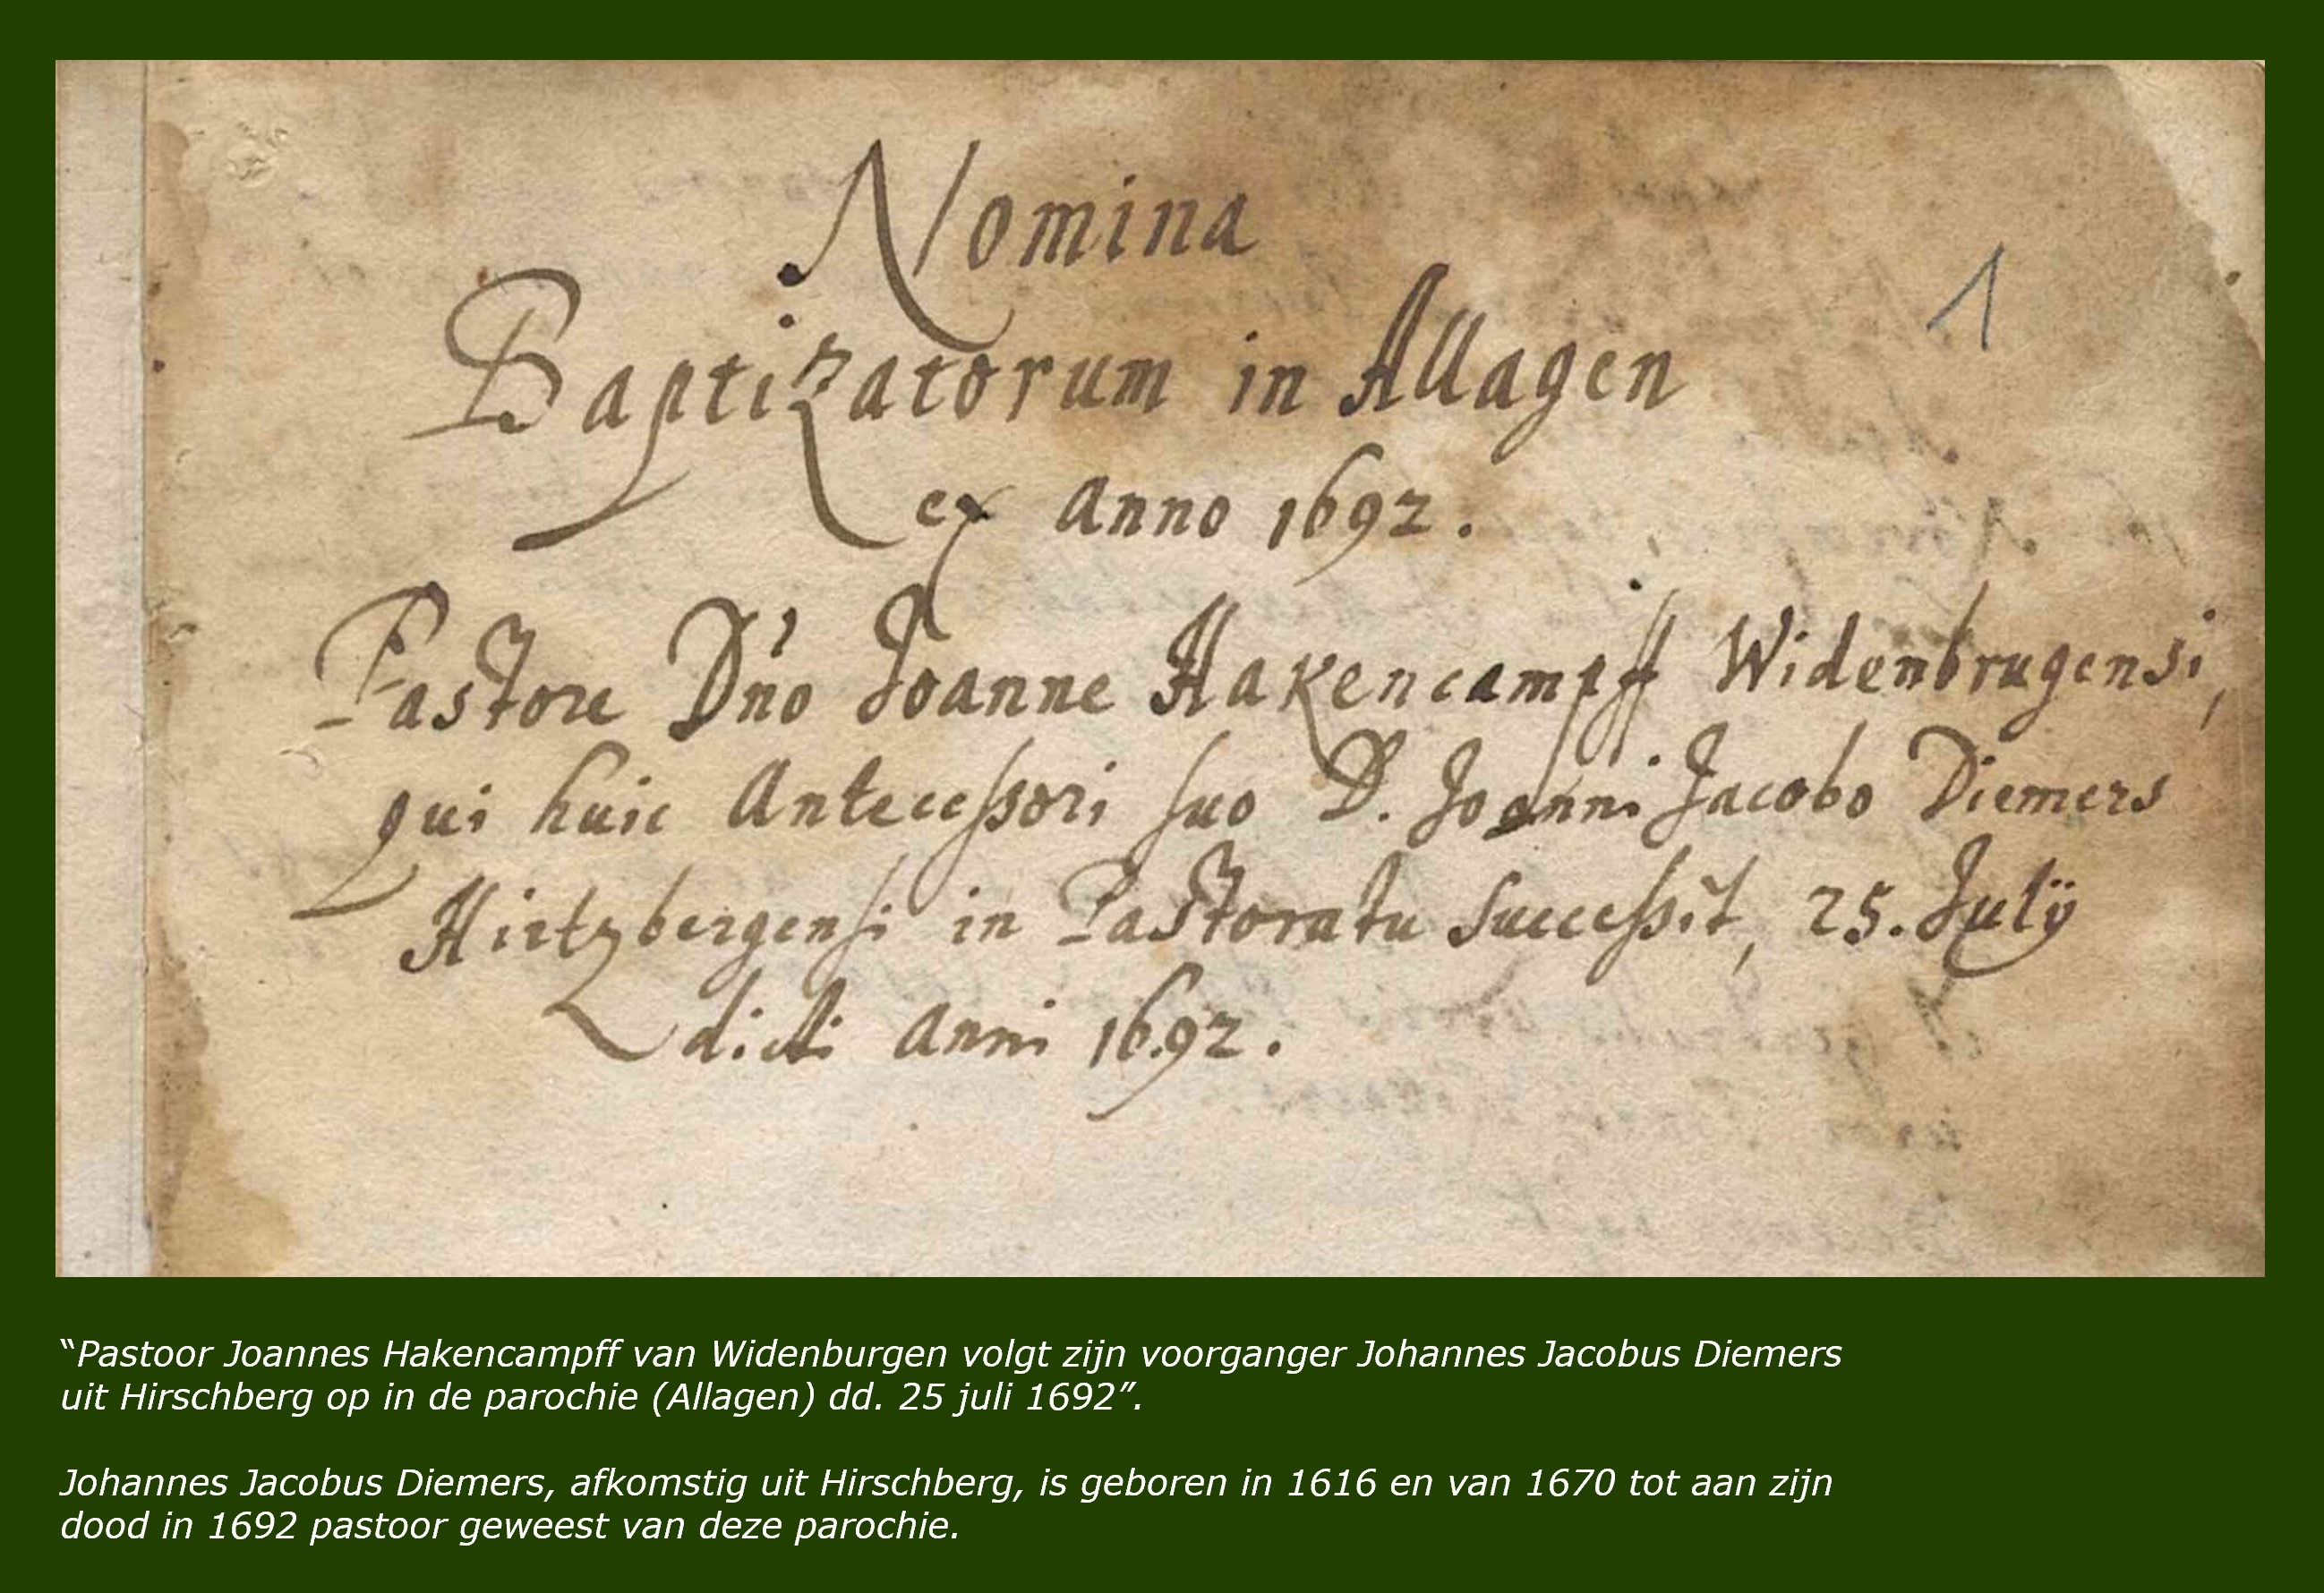 Nomina
1
Baptizatorum in Allagen
ex Anno 1692.
Pastore D'no Joanne Hakencampff Widenbrugensi,
qui huic Antecessori suo D. Joanni Jacobo Diemers
Hirtzbergensi in Pastoratu Successit, 25. Julÿ
dicti Anni 1692.
“Pastoor Joannes Hakencampff van Widenburgen volgt zijn voorganger Johannes Jacobus Diemers
uit Hirschberg op in de parochie (Allagen) dd. 25 juli 1692”.
Johannes Jacobus Diemers, afkomstig uit Hirschberg, is geboren in 1616 en van 1670 tot aan zijn
dood in 1692 pastoor geweest van deze parochie.